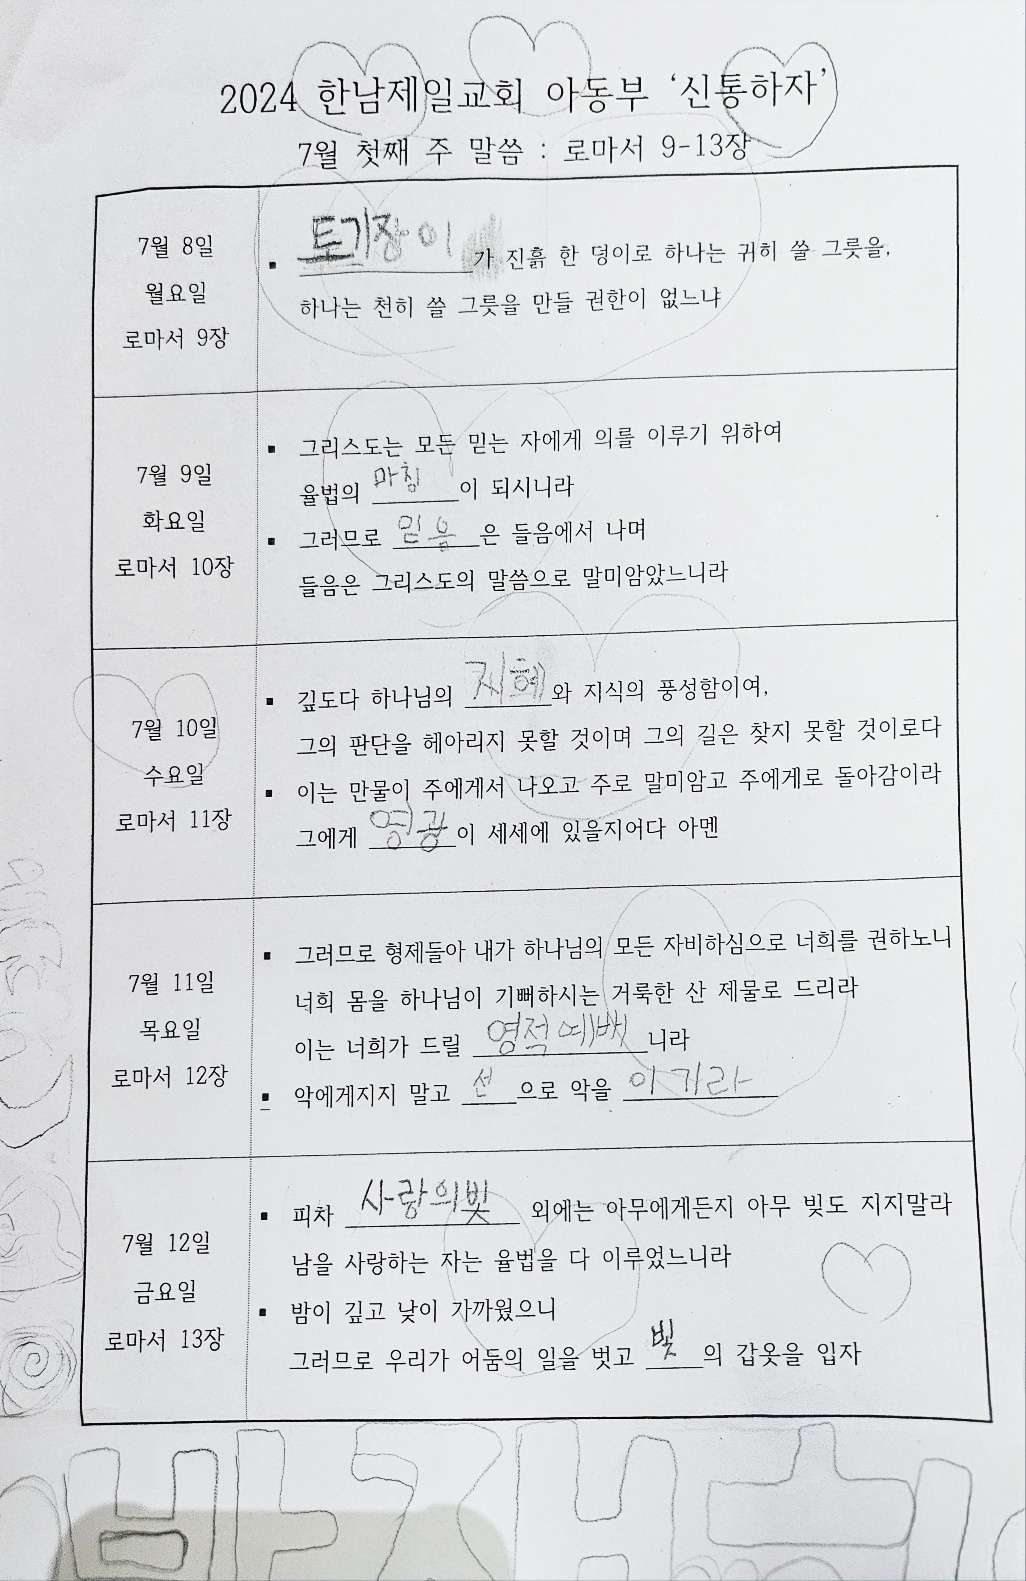 2024 한남제일교회 아동부 '신통하자'
7월 첫째 주 말씀 : 로마서 9-13장
7월 8일
월요일
로마서 9장
▪ 토기장이가 진흙 한 덩이로 하나는 귀히 쓸 그릇을,
하나는 천히 쓸 그릇을 만들 권한이 없느냐
7월 9일
화요일
로마서 10장
▪ 그리스도는 모든 믿는 자에게 의를 이루기 위하여
율법의 마침이 되시니라
▪ 그러므로 믿음은 들음에서 나며
들음은 그리스도의 말씀으로 말미암았느니라
7월 10일
수요일
로마서 11장
▪ 깊도다 하나님의 지혜와 지식의 풍성함이여,
그의 판단을 헤아리지 못할 것이며 그의 길은 찾지 못할 것이로다
▪ 이는 만물이 주에게서 나오고 주로 말미암고 주에게로 돌아감이라
그에게 영광이 세세에 있을지어다 아멘
7월 11일
목요일
로마서 12장
▪ 그러므로 형제들아 내가 하나님의 모든 자비하심으로 너희를 권하노니
너희 몸을 하나님이 기뻐하시는 거룩한 산 제물로 드리라
이는 너희가 드릴 영적예배니라
▪ 악에게지지 말고 선으로 악을 이기라
7월 12일
금요일
로마서 13장
▪ 피차 사랑의빚 외에는 아무에게든지 아무 빚도 지지말라
남을 사랑하는 자는 율법을 다 이루었느니라
▪ 밤이 깊고 낮이 가까웠으니
그러므로 우리가 어둠의 일을 벗고 빛의 갑옷을 입자